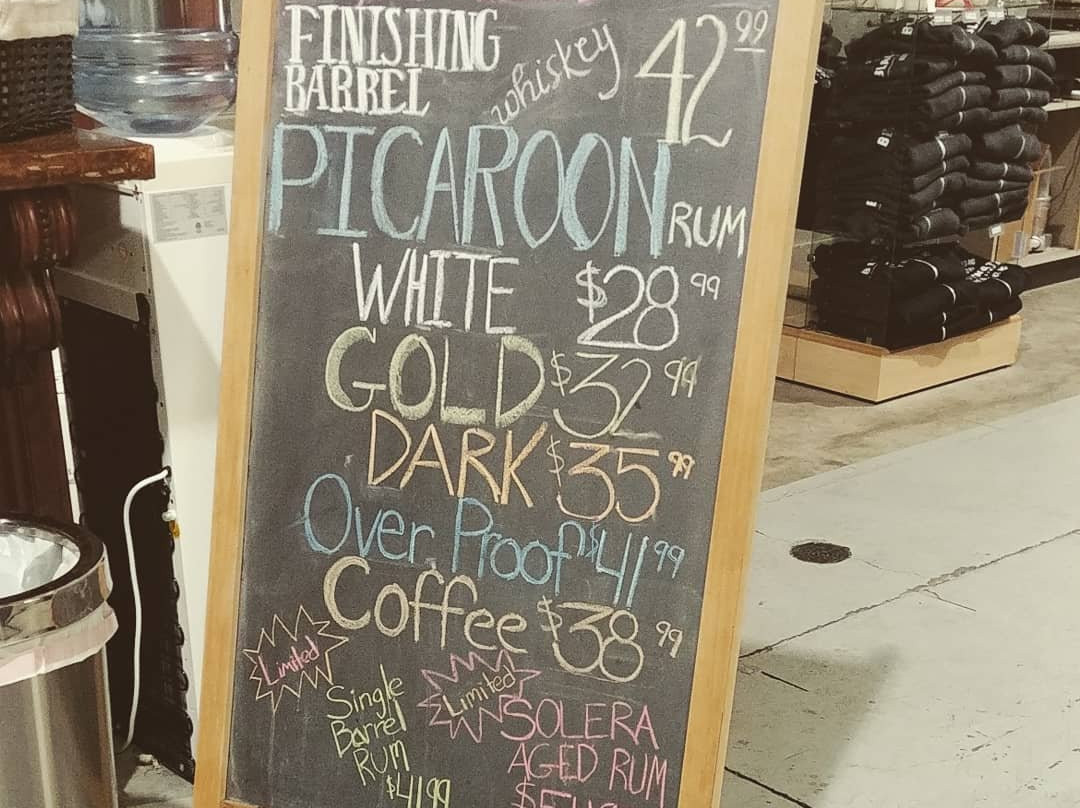 FINISHING
BARREL
whiskey 42 99
PICAROON
RUM
WHITE $28 99
GOLD $32 99
DARK $35 99
Over Proof $41 99
Coffee $38 99
Limited
Single
Barrel
RUM
$41 99
Limited
SOLERA
AGED RUM